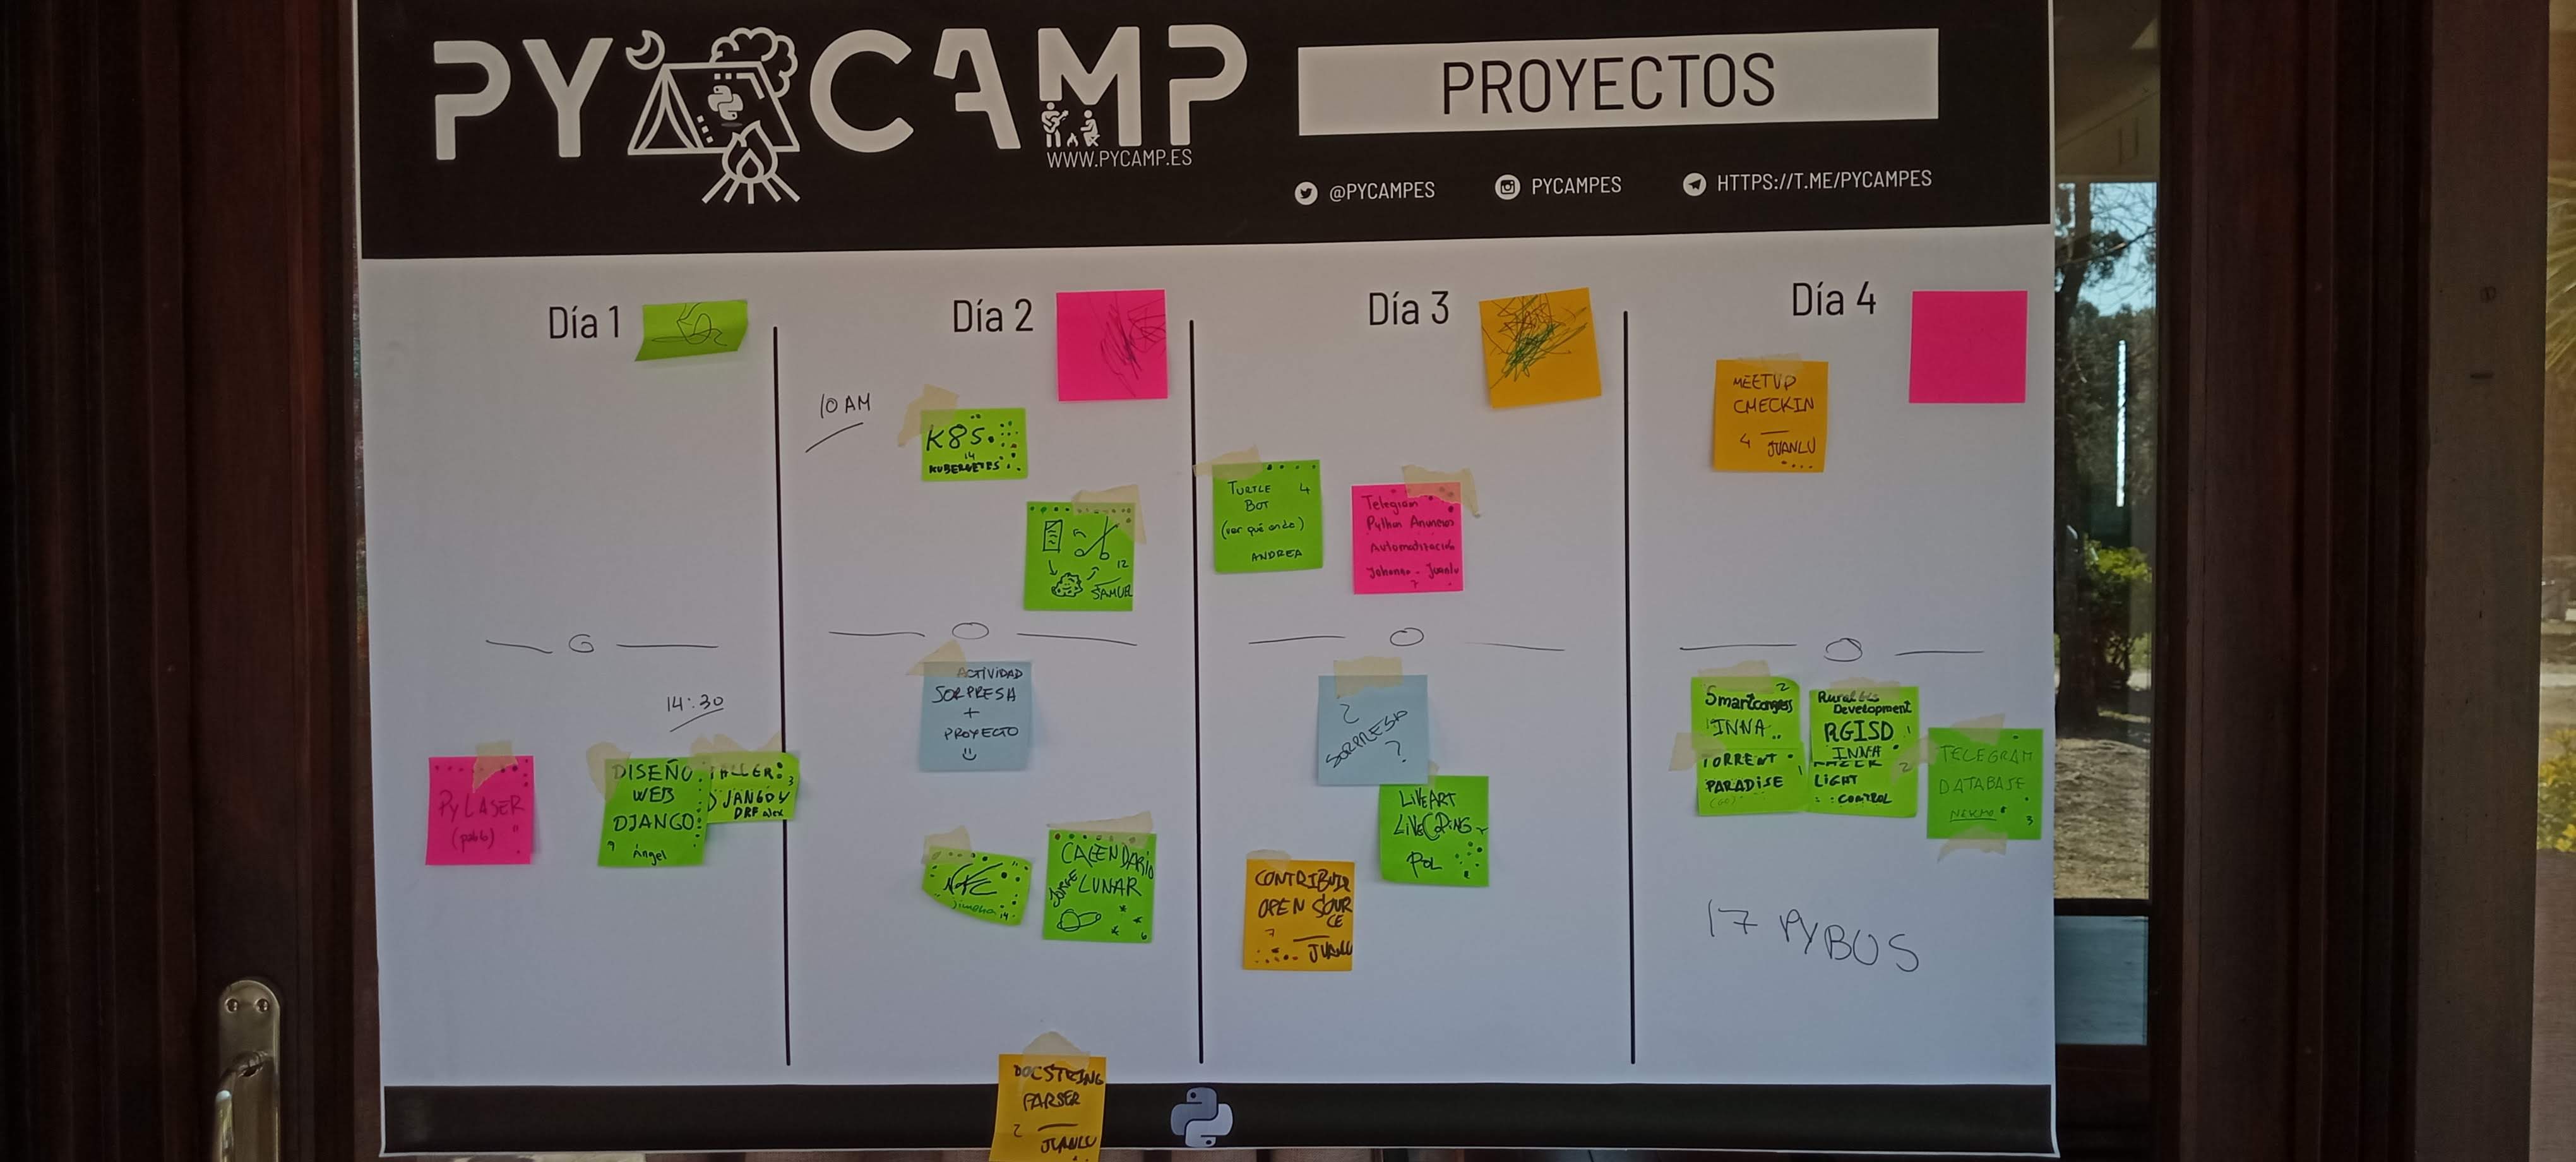 PYCAMP
WWW.PYCAMP.ES
PROYECTOS
@PYCAMPES
PYCAMPES
HTTPS://T.ME/PYCAMPES
Día 1
14:30
PYLASER
DISEÑO
WEB
DJANGO
9
Ángel
TALLER:
3
DJANGO Y
DRF
Día 2
10 AM
K8S
14
KUBERNETES
12
SAMUEL
ACTIVIDAD
SORPRESA
+
PROYECTO
NFC
Jimena 14
CALENDARIO
LUNAR
JORGE
6
DOCSTRING
PARSER
2
JUANLU
Día 3
TURTLE 4
BOT
(ver qué onda)
ANDREA
Telegram
Python Anuncios
Automatización
Johanna - Juanlu
7
?
SORPRESA
?
LIVEART
LIVECODING
POL
CONTRIBUIR
OPEN SOUR
CE
7
JUANLU
Día 4
MEETUP
CHECKIN
4 JUANLU
Smartcongress
2
INNA
TORRENT
PARADISE
1
Rural GIS
Development
RGISD
1
INNA
LIGHT
2
CONTROL
TELEGRAM
DATABASE
NEKMO
3
17 PYBUS